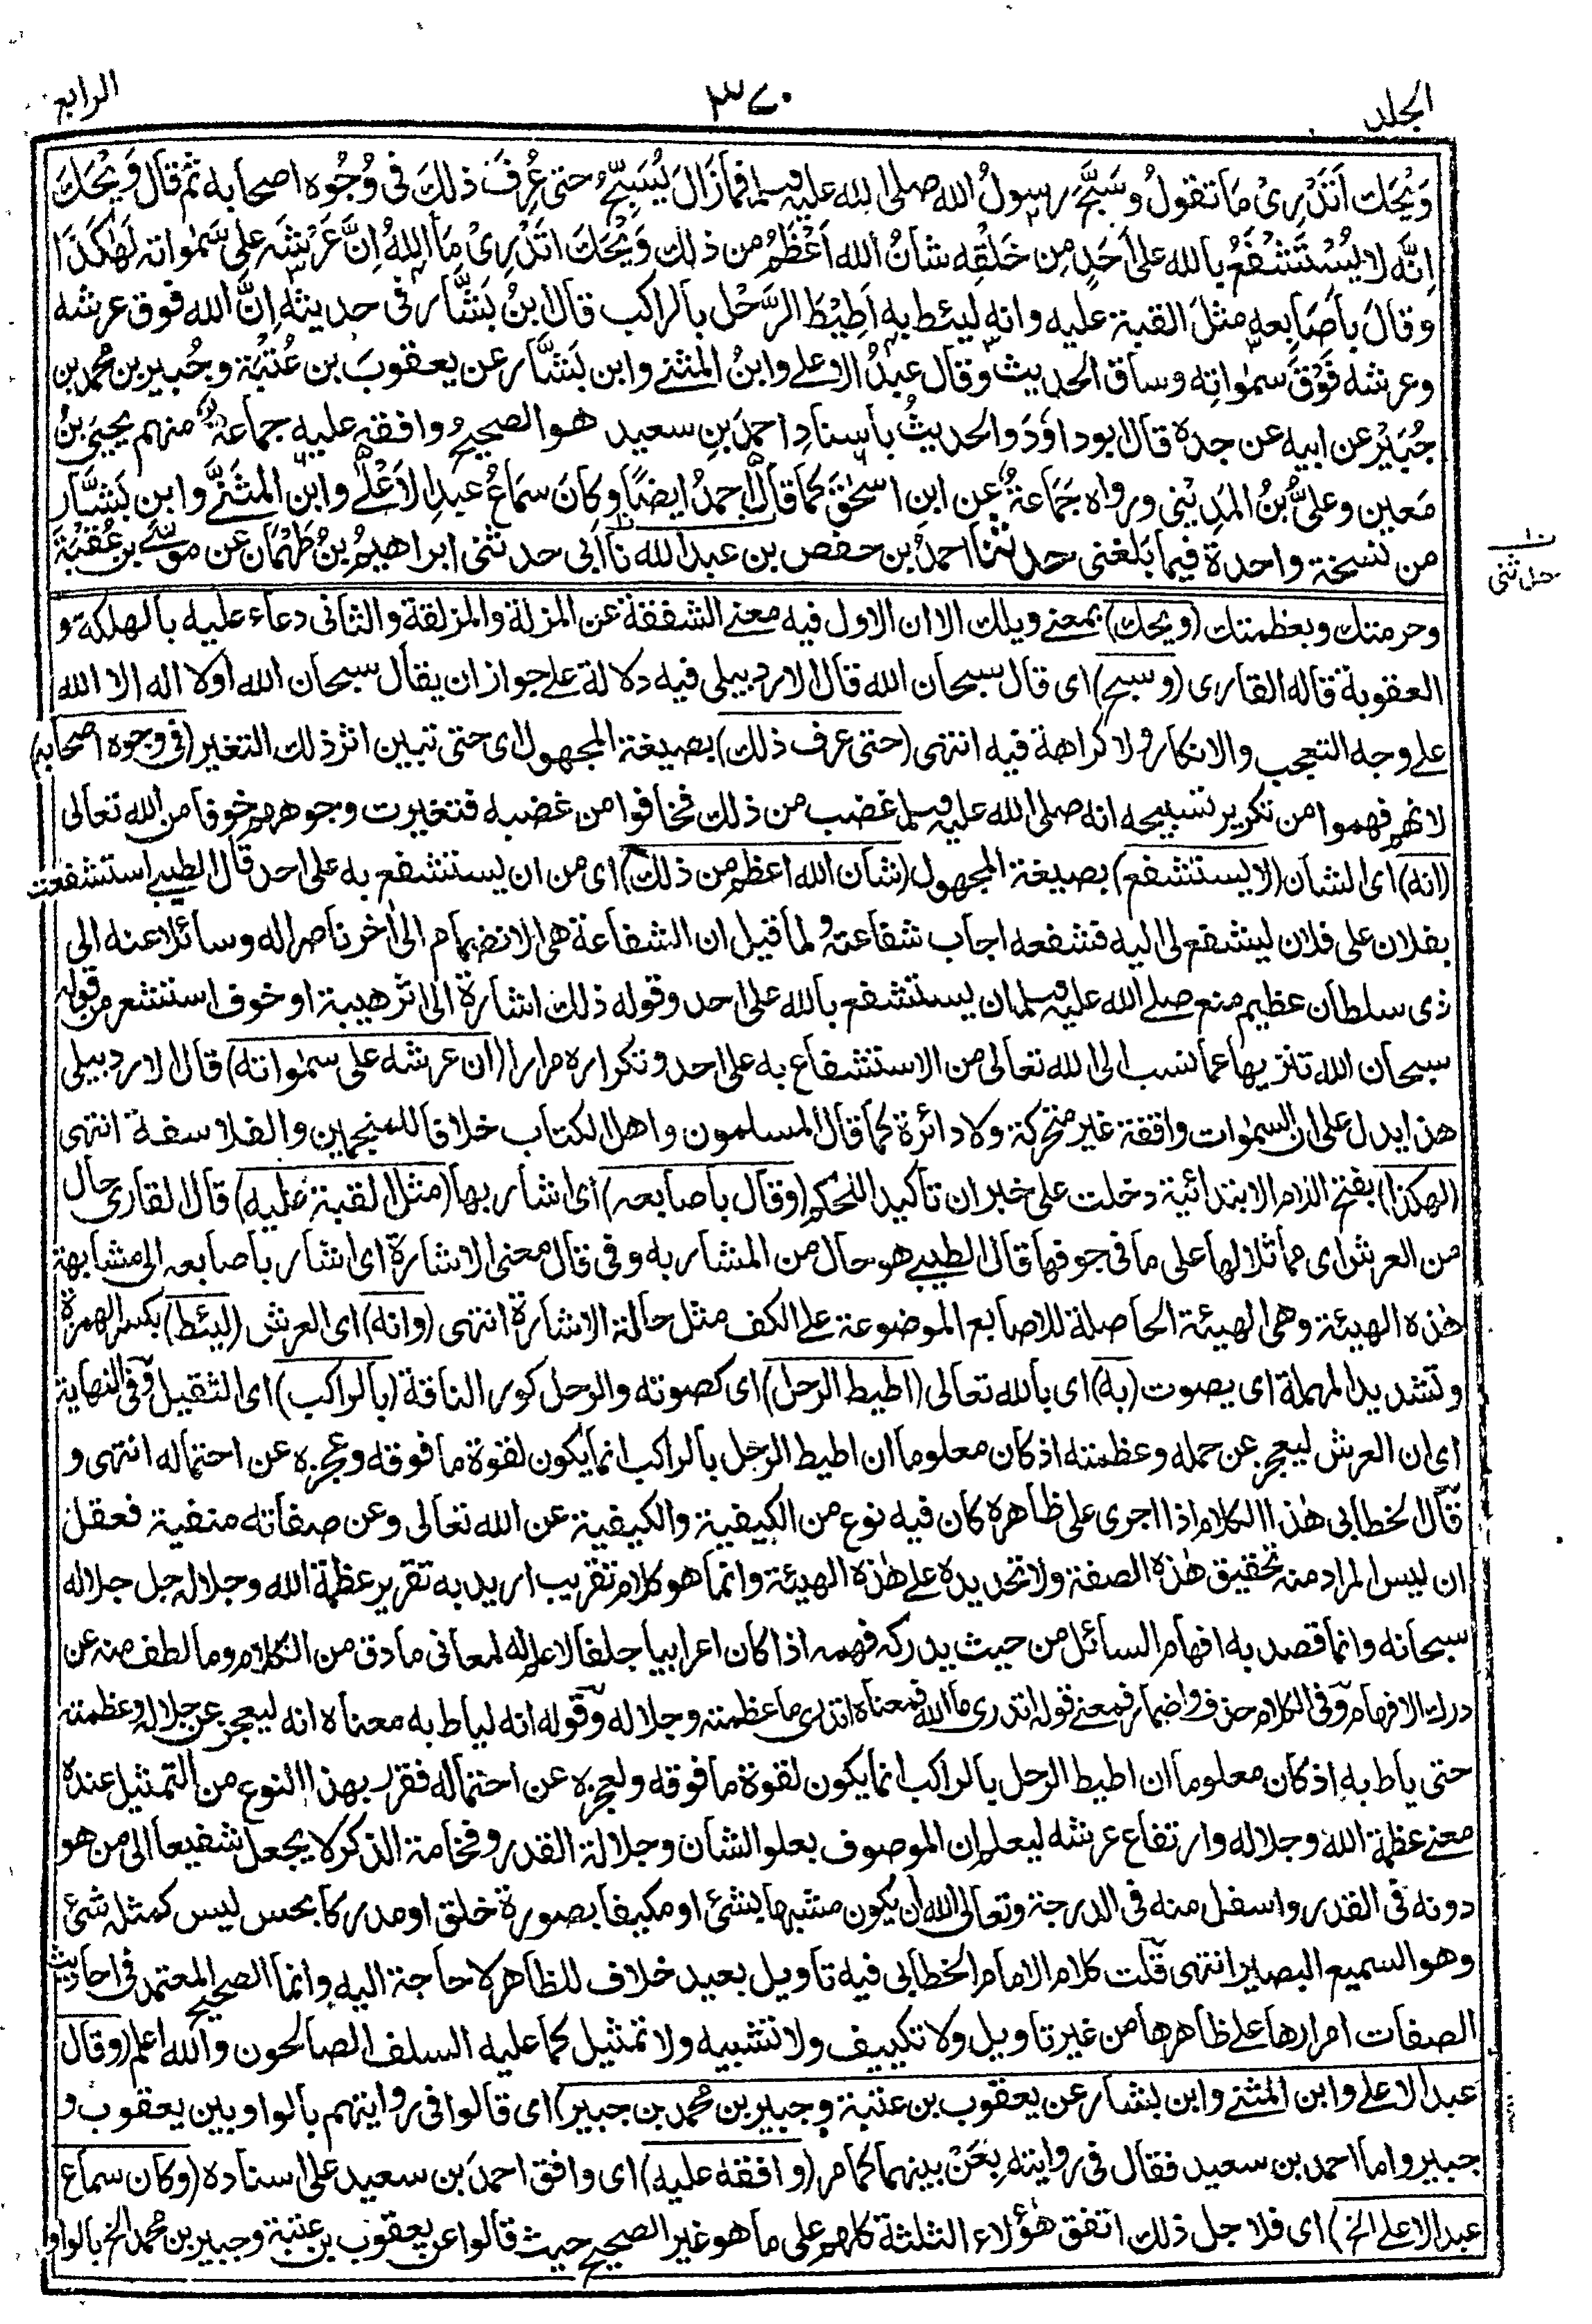 الجلد
٣٧٠
الرابع
وَيْحَكَ اَتَدْرِىْ مَا تقولُ وسَبَّحَ رسولُ الله صلى الله عليه وسلم فمازَالَ يُسَبِّحُ حتى عُرِفَ ذلكَ فى وُجُوه اصحابه ثم قال وَيْحَكَ
اِنَّه لا يُسْتَشْفَعُ بالله على اَحَدٍ مِن خَلْقِه شانُ الله اَعْظَمُ من ذلك وَيْحَكَ اَتَدْرِىْ مَا اللهُ اِنَّ عَرْشَه على سَمٰواته لَهٰكَذَا
وقالَ باَصَابِعِه مثلَ القبة عليه وانه ليئط به اَطِيْطَ الرَّحْل بالراكب قال ابنُ بَشَّار فى حديثه اِنَّ الله فوق عرشه
وعرشه فَوْقَ سمٰواتِه وساق الحديث وقال عبدُ الاعلى وابنُ المثنى وابن بَشَّار عن يعقوبَ بن عُتْبَة وجُبير بن محمد بن
جُبَيْر عن ابيه عن جده قال ابوداوٗدَ والحديثُ باسنادِ احمدَ بنِ سعيد هو الصحيحُ وافقه عليه جماعةٌ منهم يحيىَ بنُ
مَعين وعلىُّ بنُ المَدِينى ورواه جَمَاعةٌ عن ابنِ اسحٰقَ كما قال احمدُ ايضًا وكانَ سَمَاعُ عبدِ الاَعْلٰى وابن المثَنّٰى وابن بَشَّار
من نسخة واحدة فيما بَلغنى حدثنا احمدُ بن حفص بن عبد الله نا ابى حدثنى ابراهيمُ بنُ طَهْمَان عن موسٰى بن عُقْبَةَ
١٠ حدثنى
وحرمتك وبعظمتك (ويحك) بمعنى ويلك الا ان الاول فيه معنى الشفقة عن المزلة والمزلقة والثانى دعاء عليه بالهلكة و
العقوبة قاله القارى (وسبح) اى قال سبحان الله قال الاردبيلى فيه دلالة على جواز ان يقال سبحان الله اولا اله الا الله
على وجه التعجب والانكار ولا كراهة فيه انتهى (حتى عرف ذلك) بصيغة المجهول اى حتى تبين اثر ذلك التغير (فى وجوه اصحابه)
لانهم فهموا من تكرير تسبيحه انه صلى الله عليه وسلم غضب من ذلك فخافوا من غضبه فتغيرت وجوههم خوفا من الله تعالى
(انه) اى الشان (لا يستشفع) بصيغة المجهول (شان الله اعظم من ذلك) اى من ان يستشفع به على احد قال الطيبى استشفعت
بفلان على فلان ليشفع لى اليه فشفعه اجاب شفاعته ولما قيل ان الشفاعة هى الانضمام الى اٰخر ناصرا له وسائلا عنه الى
ذى سلطان عظيم منع صلى الله عليه وسلم ان يستشفع بالله على احد وقوله ذلك اشارة الى اثر هيبة او خوف استشعر من قوله
سبحان الله تنزيها عما نسب الى الله تعالى من الاستشفاع به على احد وتكراره مرارا (ان عرشه على سمٰواته) قال الاردبيلى
هذا يدل على ان السمٰوات واقفة غير متحركة ولا دائرة كما قال المسلمون واهل الكتاب خلافا للمنجمين والفلاسفة انتهى
(لهكذا) بفتح اللام الابتدائية دخلت على خبر ان تاكيدا للحكم (وقال باصابعه) اى اشار بها (مثل القبة عليه) قال القارى حال
من العرش اى مماثلا لها على ما فى جوفها قال الطيبى هو حال من المشار به وفى قال معنى الاشارة اى اشار باصابعه الى مشابهة
هٰذه الهيئة وهى الهيئة الحاصلة للاصابع الموضوعة على الكف مثل حالة الاشارة انتهى (وانه) اى العرش (ليئط) بكسر الهمزة
وتشديد المهملة اى يصوت (به) اى بالله تعالى (اطيط الرحل) اى كصوته والرحل كور الناقة (بالراكب) اى الثقيل وفى النهاية
اى ان العرش ليعجز عن حمله وعظمته اذ كان معلوما ان اطيط الرحل بالراكب انما يكون لقوة ما فوقه وعجزه عن احتماله انتهى و
قال الخطابى هٰذا الكلام اذا اجرى على ظاهره كان فيه نوع من الكيفية والكيفية عن الله تعالى وعن صفاته منفية فعقل
ان ليس المراد منه تحقيق هٰذه الصفة ولا تحديده على هٰذه الهيئة وانما هو كلام تقريب اريد به تقرير عظمة الله وجلاله جل جلاله
سبحانه وانما قصد به افهام السائل من حيث يدركه فهمه اذا كان اعرابيا جلفا لا علم له لمعانى ما دق من الكلام وما لطف منه عن
درك الافهام وفى الكلام حذف واضمار فمعنى قوله اتدرى ما الله فمعناه اتدرى ما عظمته وجلاله وقوله انه لياط به معناه انه ليعجز عن جلاله وعظمته
حتى ياط به اذ كان معلوما ان اطيط الرحل بالراكب انما يكون لقوة ما فوقه ولعجزه عن احتماله فقرر بهذا النوع من التمثيل عنده
معنى عظمة الله وجلاله وارتفاع عرشه ليعلم ان الموصوف بعلو الشان وجلالة القدر وفخامة الذكر لا يجعل شفيعا الى من هو
دونه فى القدر واسفل منه فى الدرجة وتعالى الله ان يكون مشبها بشئ او مكيفا بصورة خلق او مدركا بحس ليس كمثله شئ
وهو السميع البصير انتهى قلت كلام الامام الخطابى فيه تاويل بعيد خلاف للظاهر لا حاجة اليه وانما الصحيح المعتمد فى احاديث
الصفات امرارها على ظاهرها من غير تاويل ولا تكييف ولا تشبيه ولا تمثيل كما عليه السلف الصالحون والله اعلم (وقال
عبد الاعلى وابن المثنى وابن بشار عن يعقوب بن عتبة وجبير بن محمد بن جبير) اى قالوا فى روايتهم بالواو بين يعقوب و
جبير واما احمد بن سعيد فقال فى روايته بِعَنْ بينهما كما مر (وافقه عليه) اى وافق احمدَ بن سعيد على اسناده (وكان سماع
عبد الاعلى الخ) اى فلاجل ذلك اتفق هٰؤلاء الثلثة كلهم على ما هو غير الصحيح حيث قالوا عن يعقوب بن عتبة وجبير بن محمد الخ بالواو